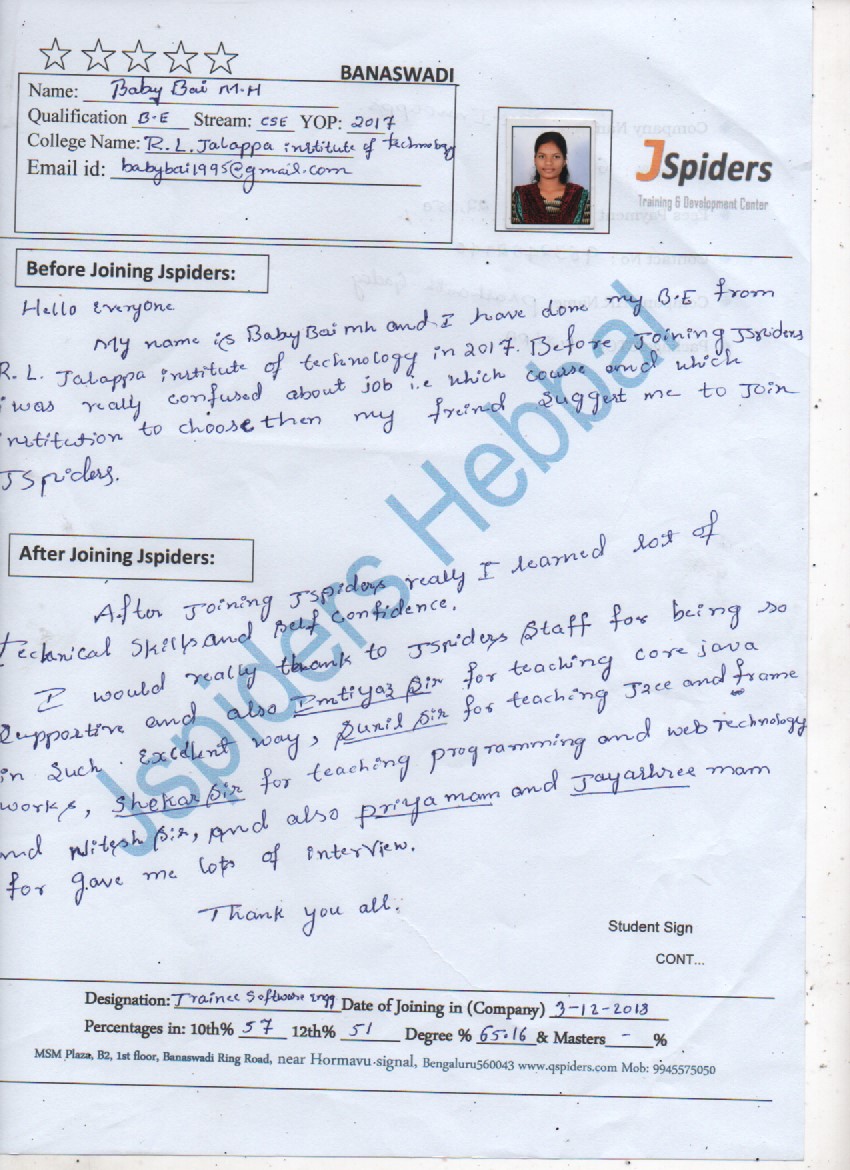 BANASWADI
Name: Baby Bai M.H
Qualification B.E Stream: CSE YOP: 2017
College Name: R. L. Jalappa institute of technology
Email id: babybai1995@gmail.com
JSpiders
Training & Development Center
Before Joining Jspiders:
Hello Everyone
My name is Baby Bai mh and I have done my B.E from
R. L. Jalappa institute of technology in 2017. Before Joining JSpiders
i was really confused about job i.e which course and which
institution to choose then my freind suggest me to Join
JSpiders.
After Joining Jspiders:
After Joining JSpiders really I learned lot of
technical skills and self confidence.
I would really thank to JSpiders Staff for being so
supportive and also Imtiyaz Sir for teaching core java
in such Excellent way, Sunil Sir for teaching J2ee and frame
works, Shekar Sir for teaching programming and web technology
and Nitesh Sir, and also priya mam and Jayashree mam
for gave me lots of interview.
Thank you all.
Jspiders Hebbal
Student Sign
CONT...
Designation: Trainee Software Engg Date of Joining in (Company) 3-12-2018
Percentages in: 10th% 57 12th% 51 Degree % 65.16 & Masters - %
MSM Plaza, B2, 1st floor, Banaswadi Ring Road, near Hormavu signal, Bengaluru560043 www.qspiders.com Mob: 9945575050